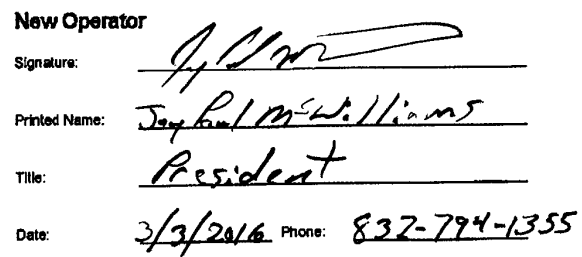 New Operator
Signature:
Printed Name: Jay Paul McWilliams
Title: President
Date: 3/3/2016 Phone: 832-794-1355